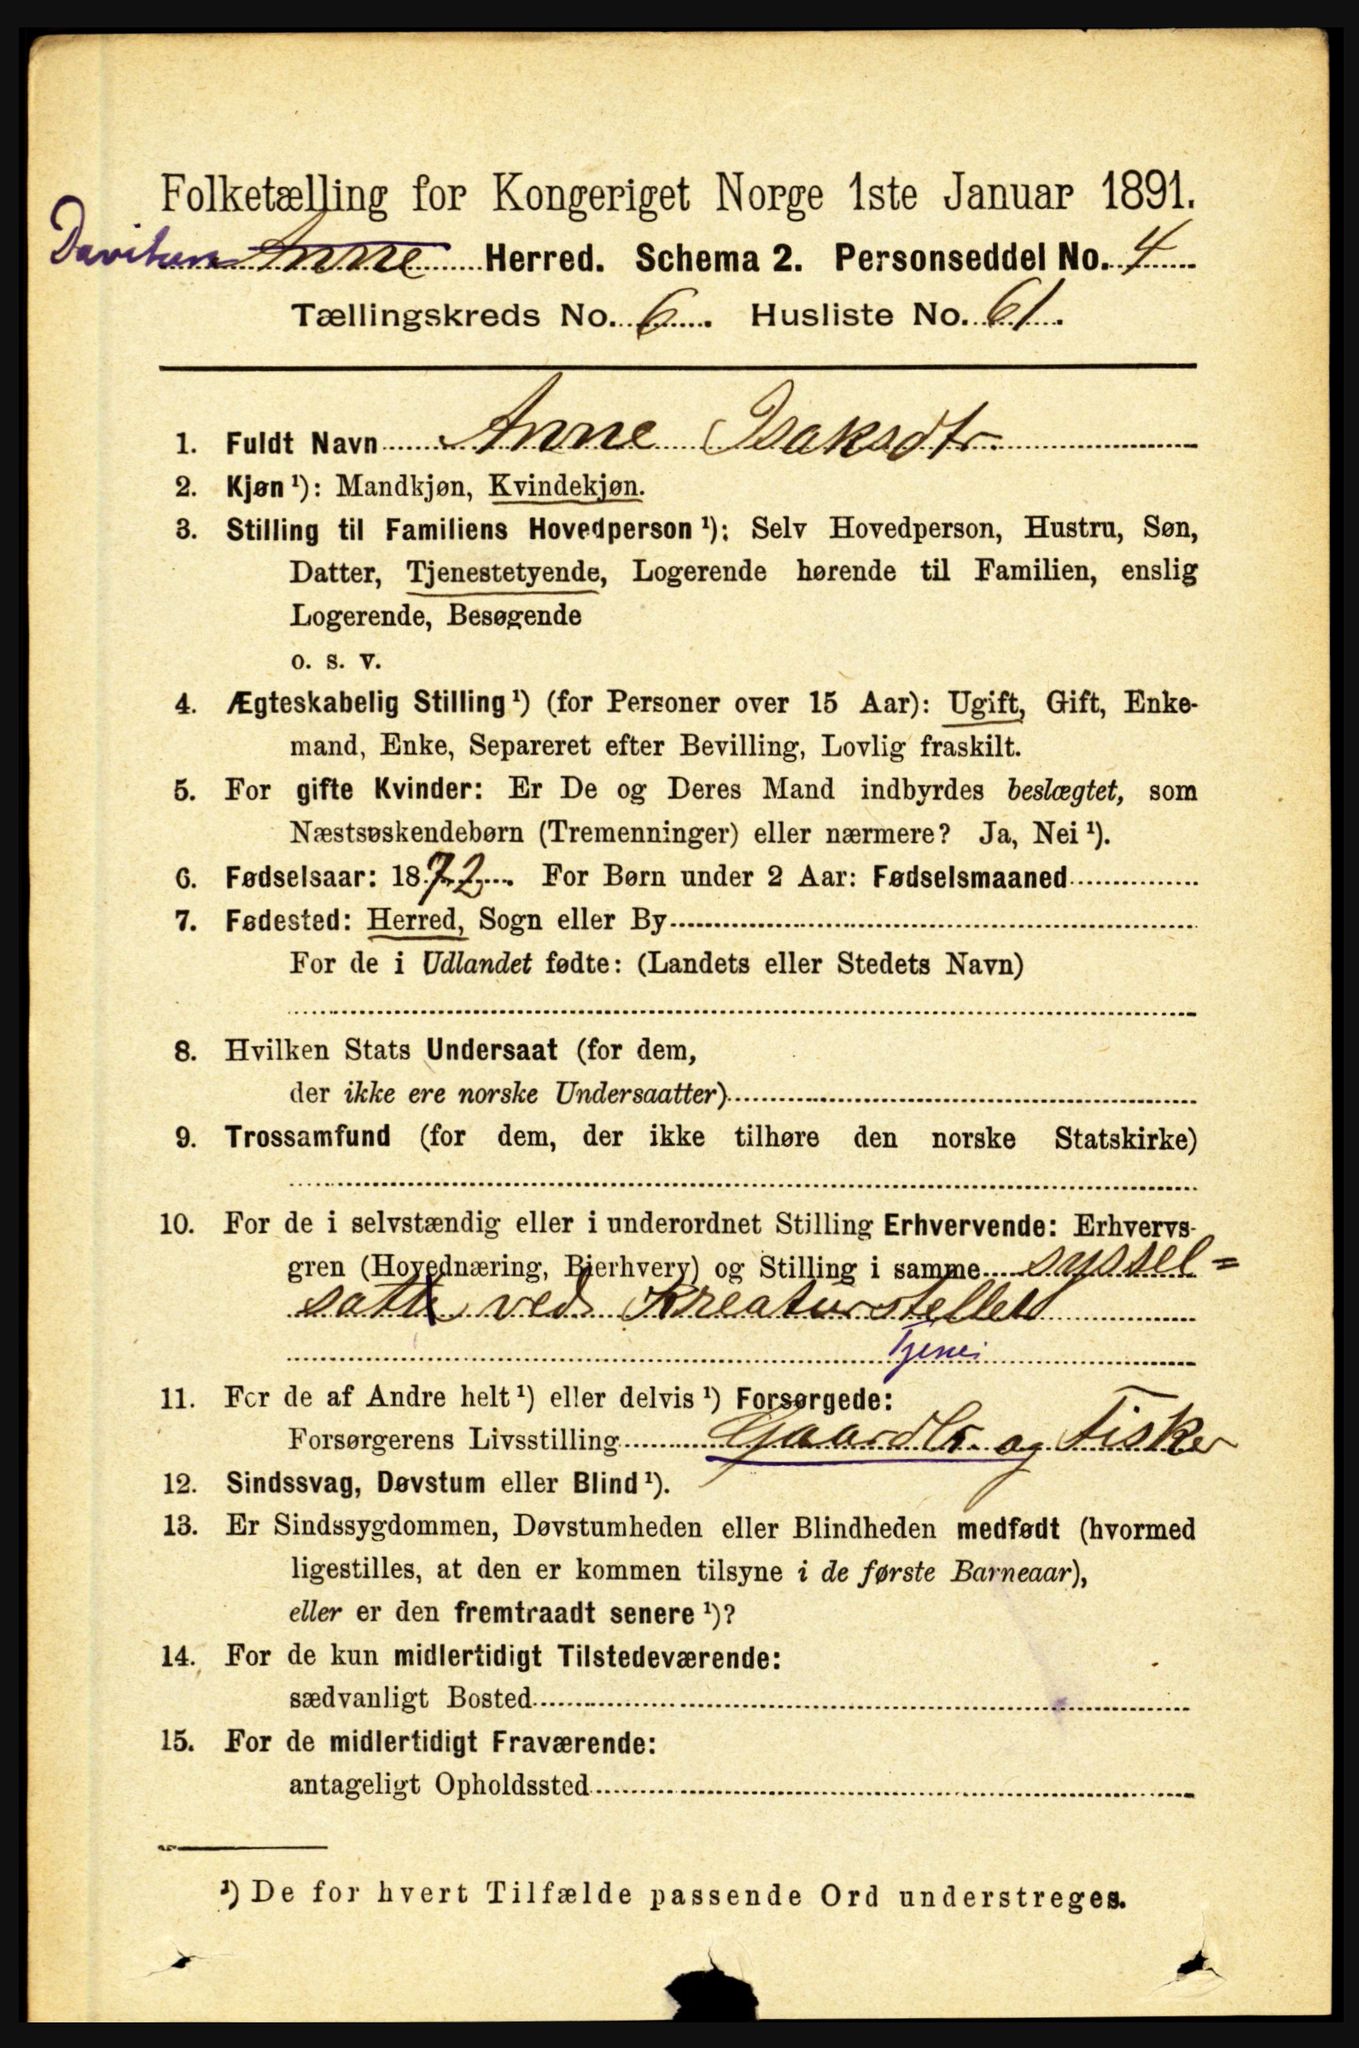 Folketælling for Kongeriget Norge 1ste Januar 1891.
Daviken Anne Herred. Schema 2. Personseddel No. 4
Tællingskreds No. 6. Husliste No. 61.
1. Fuldt Navn Anne Isaksdtr.
2. Kjøn ¹): Mandkjøn, Kvindekjøn.
3. Stilling til Familiens Hovedperson ¹): Selv Hovedperson, Hustru, Søn,
Datter, Tjenestetyende, Logerende hørende til Familien, enslig
Logerende, Besøgende
o. s. v.
4. Ægteskabelig Stilling ¹) (for Personer over 15 Aar): Ugift, Gift, Enke-
mand, Enke, Separeret efter Bevilling, Lovlig fraskilt.
5. For gifte Kvinder: Er De og Deres Mand indbyrdes beslægtet, som
Næstsøskendebørn (Tremenninger) eller nærmere? Ja, Nei ¹).
6. Fødselsaar: 1872. For Børn under 2 Aar: Fødselsmaaned
7. Fødested: Herred, Sogn eller By
For de i Udlandet fødte: (Landets eller Stedets Navn)
8. Hvilken Stats Undersaat (for dem,
der ikke ere norske Undersaatter)
9. Trossamfund (for dem, der ikke tilhøre den norske Statskirke)
10. For de i selvstændig eller i underordnet Stilling Erhvervende: Erhvervs-
gren (Hovednæring, Bierhverv) og Stilling i samme syssel=
satt ved Kreaturstellet
Tjenei
11. For de af Andre helt ¹) eller delvis ¹) Forsørgede:
Forsørgerens Livsstilling Gaardbr. og Fisker
12. Sindssvag, Døvstum eller Blind ¹).
13. Er Sindssygdommen, Døvstumheden eller Blindheden medfødt (hvormed
ligestilles, at den er kommen tilsyne i de første Barneaar),
eller er den fremtraadt senere ¹)?
14. For de kun midlertidigt Tilstedeværende:
sædvanligt Bosted
15. For de midlertidigt Fraværende:
antageligt Opholdssted
¹) De for hvert Tilfælde passende Ord understreges.